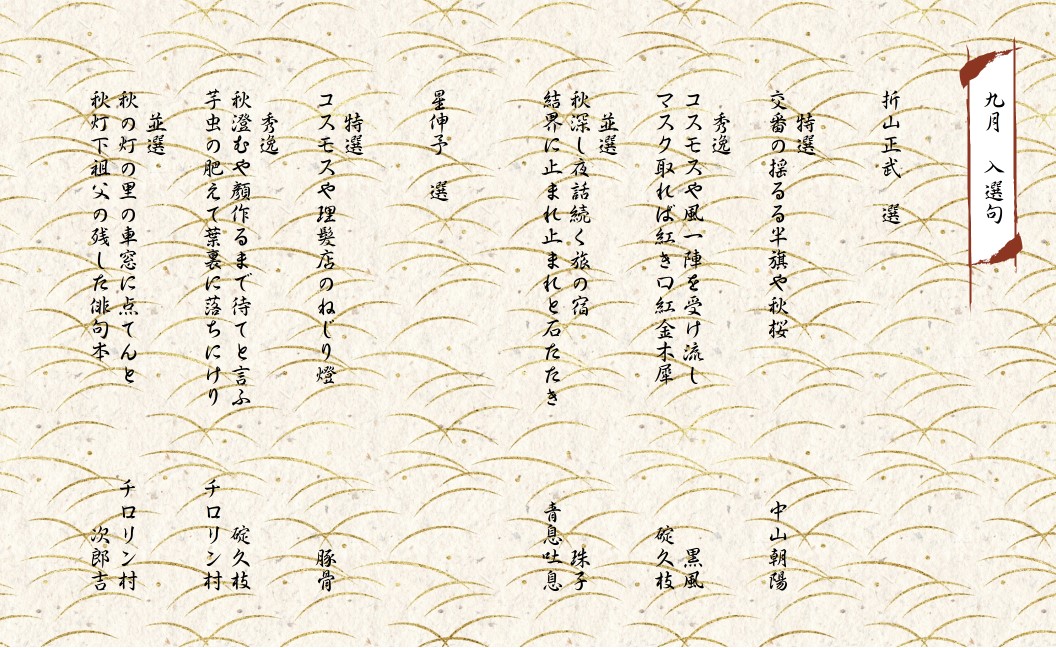 九月　入選句
折山正武　選
特選
交番の揺るる半旗や秋桜　中山朝陽
秀逸
コスモスや風一陣を受け流し　黒風
マスク取れば紅き口紅金木犀　碇久枝
並選
秋深し夜話続く旅の宿　珠子
結界に止まれ止まれと石たたき　青息吐息
星伸予　選
特選
コスモスや理髪店のねじり燈　豚骨
秀逸
秋澄むや顔作るまで待てと言ふ　碇久枝
芋虫の肥えて葉裏に落ちにけり　チロリン村
並選
秋の灯の里の車窓に点てんと　チロリン村
秋灯下祖父の残した俳句本　次郎吉